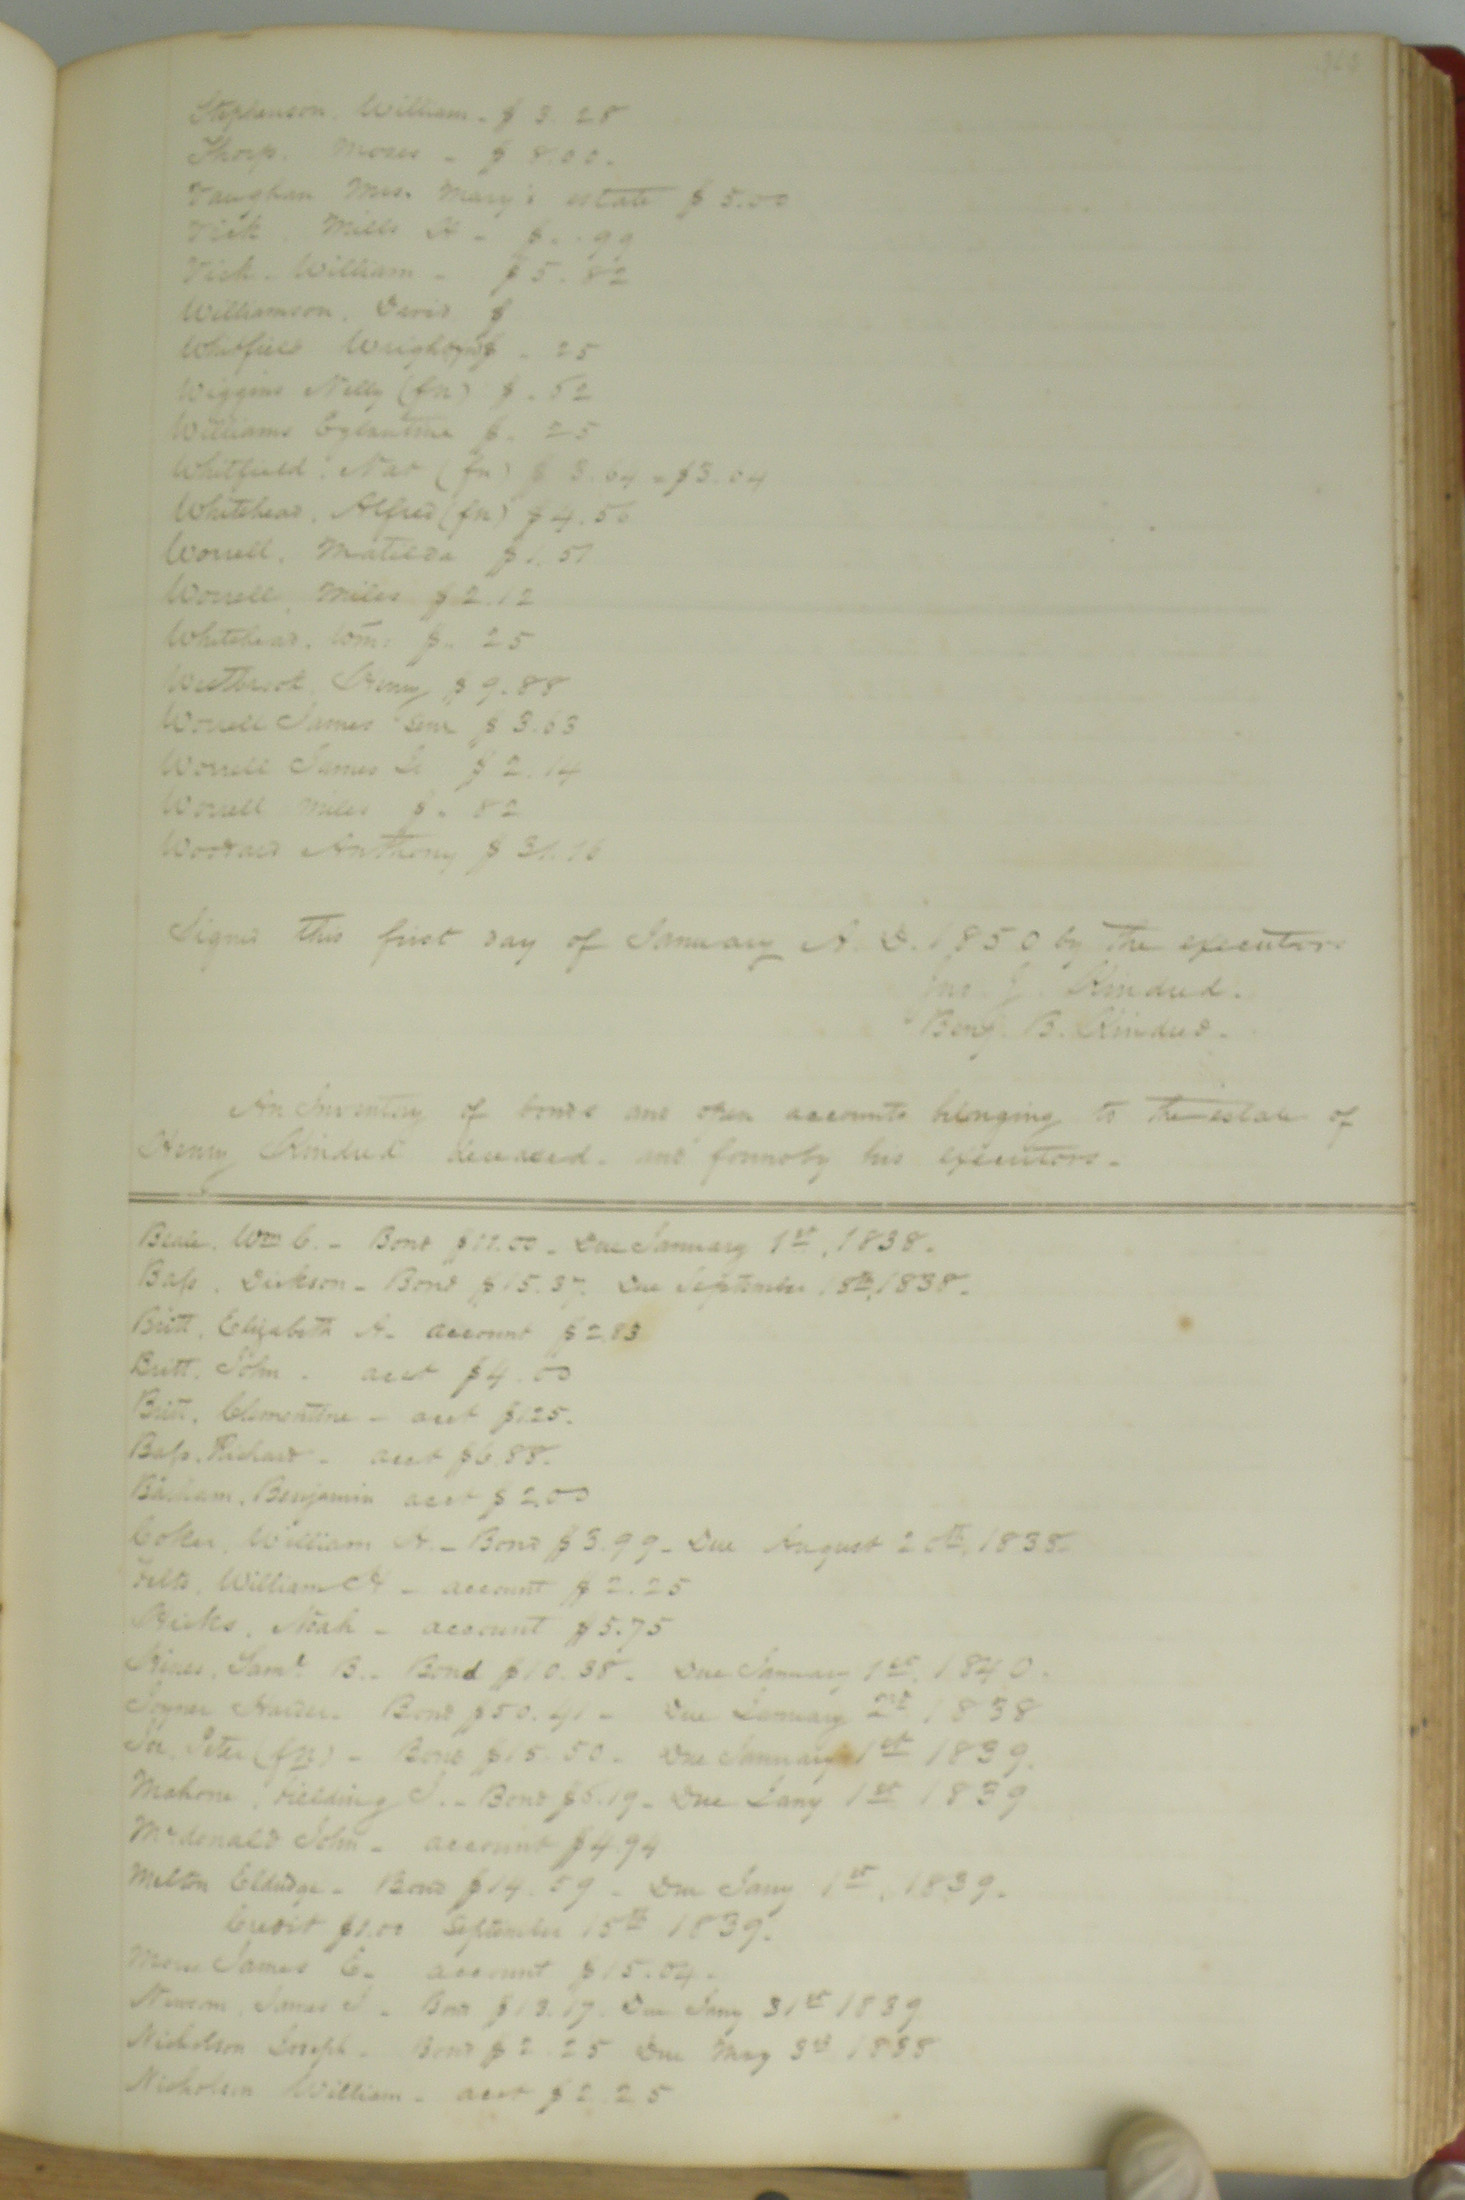 Stephenson, William - $3.28
Thorp. Moses - $8.00.
Vaughan Mrs. Mary's estate $5.00
Vick, Mills H - $ . 99
Vick - William - $5.82
Williamson, David $
Whitfield $ . 25
Wiggins Nelly (fn) $ . 52
Williams Eglantine $ . 25
Whitfield, Nat (fn) $ 3.64 = $3.04
Whitehead, Alfred (fn) $4.56
Worrell, Matilda $1.51
Worrell, Miles $2.12
Whitehead, Wm: $ . 25
Westbrook, Henry $9.88
Worrell James Senr $3.63
Worrell James Jr $2.14
Worrell Miles $ . 82
Woodard Anthony $31.16
Signed this first day of January A. D. 1850 by the executors
Jno. J. Kindred.
Benj. B. Kindred.
An Inventory of bonds and open accounts belonging to the estate of
Henry Kindred deceased. and found by his executors.
Beale, Wm C. - Bond $11.00 - Due January 1st, 1838.
Bass, Dickson - Bond $15.37. Due September 18th, 1838.
Britt, Elizabeth A. account $2.83
Britt, John . acct $4.00
Britt, Clementine - acct $1.25.
Bass, Richard - acct $6.88.
Barham, Benjamin acct $2.00
Coker, William H. - Bond $3.99 - Due August 20th, 1838.
Felts, William H - account $2.25
Hicks, Noah - account $5.75
Hines, Saml B. - Bond $10.38 - Due January 1st, 1840.
Joyner - Bond $50.41 - Due January 2nd, 1838
Peter (fn) - Bond $15.50 - Due January 1st 1839.
Mahone, Fielding J. - Bond $5.19 - Due Jany 1st 1839
McDonald John - account $4.94
Melton Eldridge - Bond $14.59 - Due Jany 1st, 1839.
Credit $1.00 September 15th 1839.
James E. account $15.04.
Newsom, James J. - Bond $13.17. Due Jany 31st 1839
Nicholson Joseph - Bond $2.25 Due May 3d 1838
Nicholson William - acct $2.25